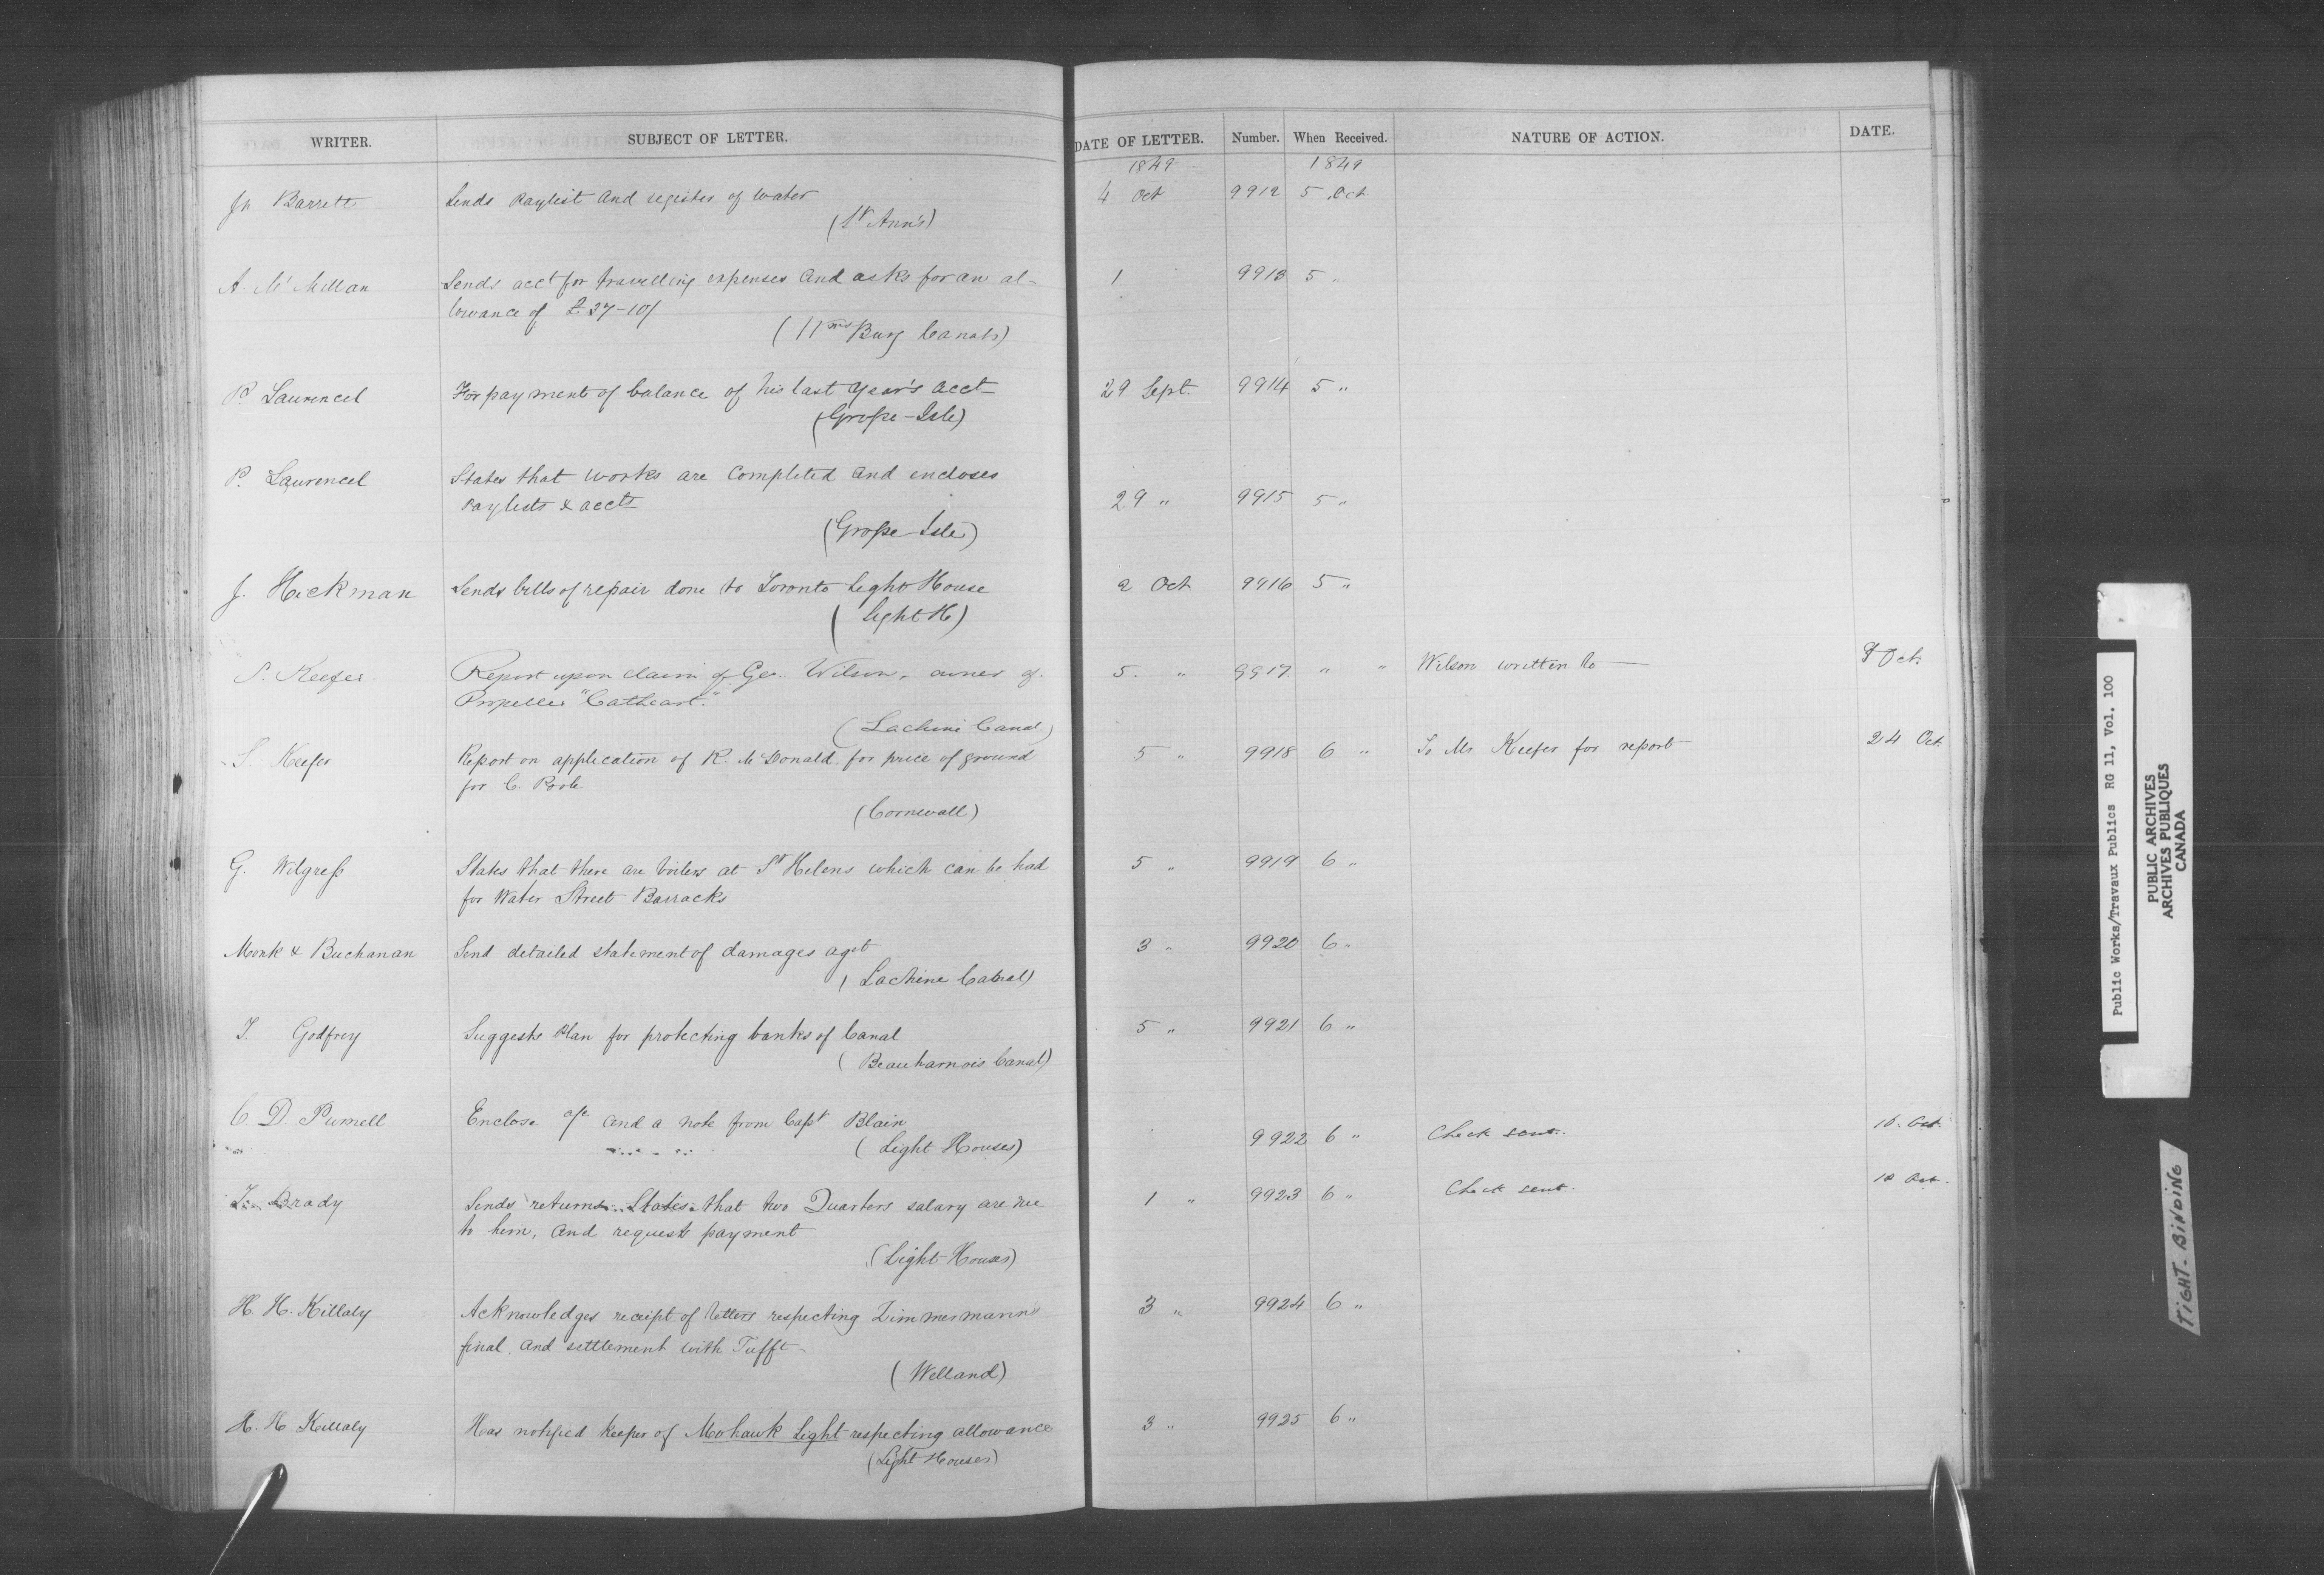 WRITER. SUBJECT OF LETTER. DATE OF LETTER. Number. When Received. NATURE OF ACTION. DATE.
1849 1849
Jn Barrett Sends Paylist and register of water 4 Oct 9912 5 Oct
(St Ann's)
A. McMillan Sends acct for travelling expenses and asks for an al- 1 9913 5 "
lowance of £37-10/
(Wms Burg Canals)
P. Laurencel For payment of balance of his last Year's acct 29 Sept. 9914 5 "
(Grosse-Isle)
P. Laurencel States that works are completed and encloses
Paylists & accts 29 " 9915 5 "
(Grosse-Isle)
J. Hickman Sends bills of repair done to Toronto Light House 2 Oct 9916 5 "
(Light H)
S. Keefer Report upon claim of Geo. Wilson, owner of 5. " 9917 " " Wilson written to 8 Oct.
Propeller "Cathcart."
(Lachine Canal)
S. Keefer Report on application of R. McDonald for price of ground 5 " 9918 6 " To Mr Keefer for report 24 Oct.
for C. Poole
(Cornwall)
G. Wilgress States that there are boilers at St Helens which can be had 5 " 9919 6 "
for Water Street Barracks
Monk & Buchanan Send detailed statement of damages agst 3 " 9920 6 "
(Lachine Canal)
T. Godfrey Suggests Plan for protecting banks of Canal 5 " 9921 6 "
(Beauharnois Canal)
C. D. Purnell Enclose a/c and a note from Capt Blain
(Light Houses) 9922 6 " Check sent. 10. Oct.
Brady Sends returns. States that two Quarters salary are due 1 " 9923 6 " Check sent. 10 Oct.
to him, and requests payment
(Light Houses)
H. H. Killaly Acknowledges receipt of letters respecting Zimmermann's 3 " 9924 6 "
final, and settlement with Tufft
(Welland)
H. H Killaly Has notified keeper of Mohawk Light respecting allowance 3 " 9925 6 "
(Light Houses)
Public Works/Travaux Publics RG 11, Vol. 100
PUBLIC ARCHIVES
ARCHIVES PUBLIQUES
CANADA
TIGHT-BINDING